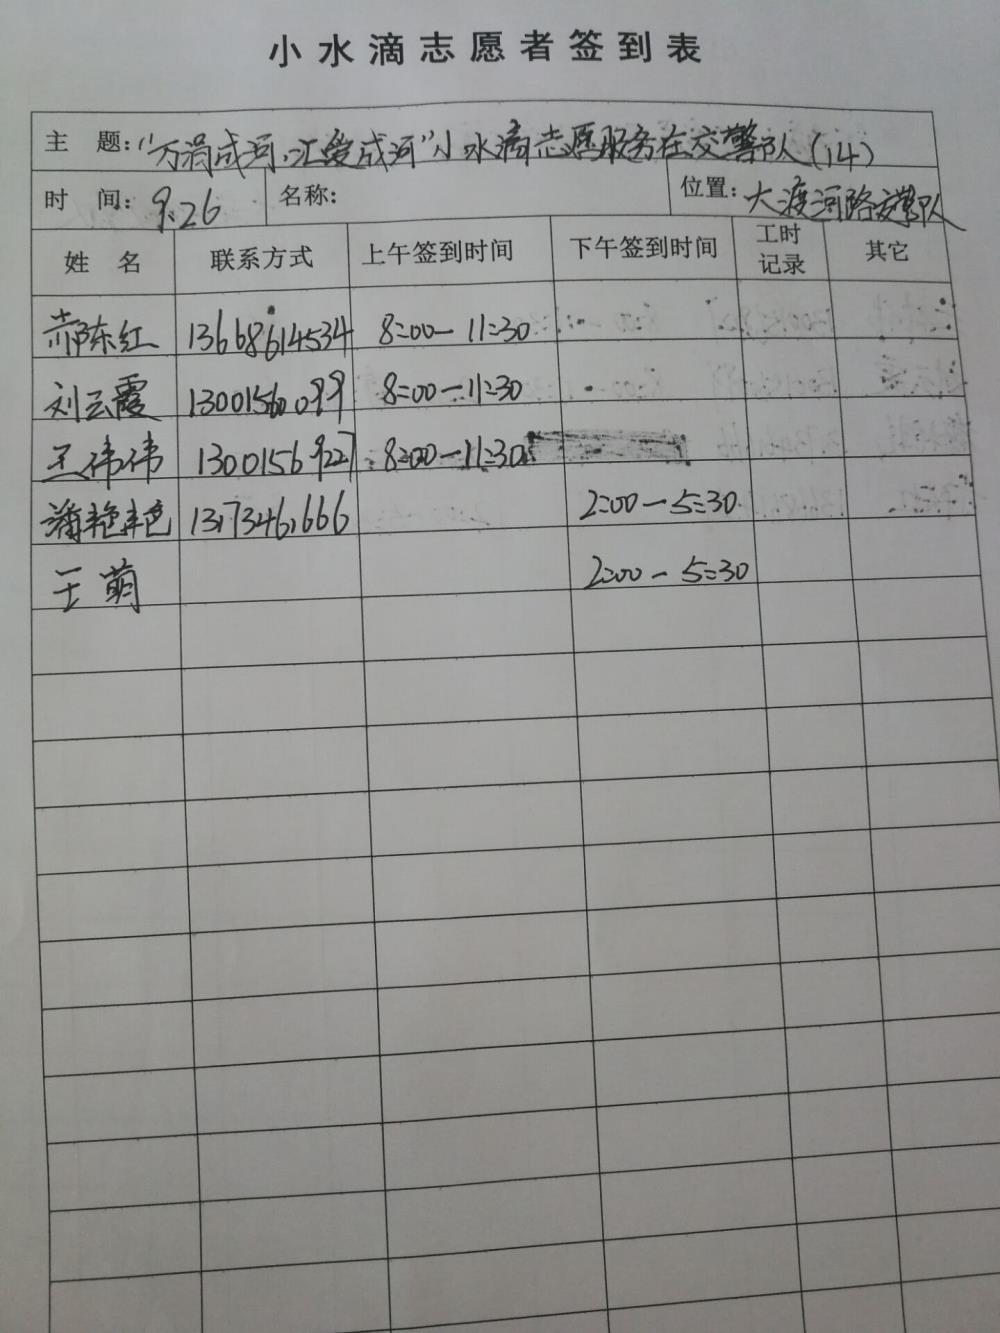 小水滴志愿者签到表
主 题: "万涓成河.汇爱成河"小水滴志愿服务在交警队(14)
时 间: 9.26 名称: 位置: 大渡河路交警队
姓 名 联系方式 上午签到时间 下午签到时间 工时记录 其它
郝东红 13668614534 8:00-11:30
刘云霞 13001560099 8:00-11:30
王伟伟 13001569227 8:00-11:30
蒲艳艳 13173461666 2:00-5:30
王萌 2:00-5:30